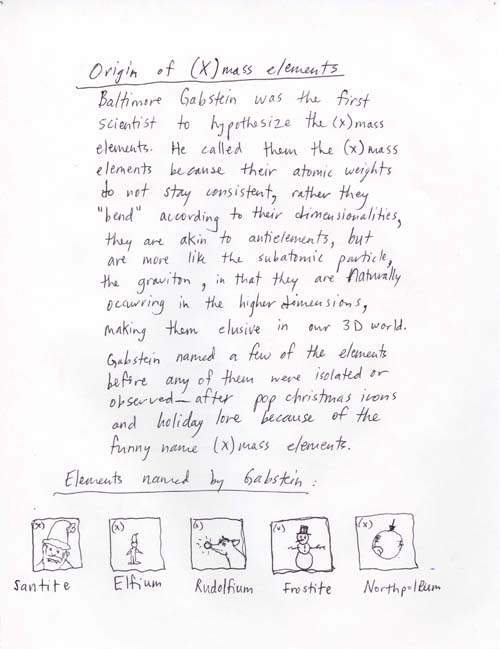 Origin of (X)mass elements
Baltimore Gabstein was the first
scientist to hypothesize the (x)mass
elements. He called them the (x)mass
elements because their atomic weights
do not stay consistent, rather they
"bend" according to their dimensionalities,
they are akin to antielements, but
are more like the subatomic particle,
the graviton, in that they are Naturally
occurring in the higher dimensions,
making them elusive in our 3D world.
Gabstein named a few of the elements
before any of them were isolated or
observed—after pop christmas icons
and holiday lore because of the
funny name (X)mass elements.
Elements named by Gabstein:
(x) (x) (x) (x) (x)
Santite Elfium Rudolfium Frostite Northpolium